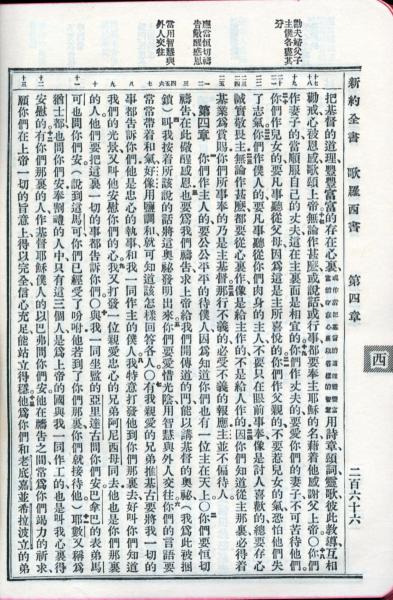 新約全書 歌羅西書 第四章 二百六十六
西
勸夫婦父子
主僕各盡其
分
應當恒切禱
告儆醒感恩
當用智慧與
外人交往
把基督的道理豐豐富富的存在心裏、用詩章頌詞靈歌彼此教導、互相
勸戒、心被恩感歌頌上帝、無論作甚麽、或說話、或行事、都要奉主耶穌的名、藉着他感謝父上帝○你們
作妻子的、當順服自己的丈夫、這在主裏面是相宜的、你們作丈夫的、要愛你們的妻子、不可苦待他們、
你們作兒女的、要凡事聽從父母、因爲這是主所喜悅的、你們作父親的、不要惹兒女的氣、恐怕他們失
了志氣、你們作僕人的、要凡事聽從你們肉身的主人、不要只在眼前事奉、像是討人喜歡的、總要存心
誠實敬畏主、無論作甚麽、都要從心裏作、像是給主作的、不是給人作的、因你們知道從主那裏、必得着
基業爲賞賜、你們所事奉的乃是主基督、那行不義的、必受不義的報應、主並不偏待人、
第四章 你們作主人的、要公公平平的待僕人、因爲知道你們也有一位主在天上○你們要恒切
禱告、在此儆醒感恩、也要爲我們禱告、求上帝給我們開傳道的門、能以講基督的奧祕、(我爲此被捆
鎖)叫我按着所該說的話、將這奧祕發明出來、你們要愛惜光陰、用智慧與外人交往、你們的言語要
常常帶着和氣、好像用鹽調和、就可知道該怎樣回答各人○有我親愛的兄弟推基古、要將我一切的
事都告訴你們、他是忠心的執事、和我一同作主的僕人、我特意打發他到你們那裏去、好叫你們知道
我們的光景、又叫他安慰你們的心、我又打發一位親愛忠心的兄弟阿尼西母同去、他也是你們那裏
的人、他們要把這裏一切的事都告訴你們○與我一同坐監的亞里達古問你們安、巴拿巴的表弟馬
可也問你們安、(說到這馬可、你們已經受了吩咐、他若到了你們那裏、你們就接待他)耶數又稱爲
猶士都、也問你們安、奉割禮的人中、只有這三個人、是爲上帝的國與我一同作工的、也是叫我心裏得
安慰的、有你們那裏的人、作基督耶穌僕人的以巴弗、問你們安、他在禱告之間、常爲你們竭力的祈求、
願你們在上帝一切的旨意上、得以完全、信心充足、能站立得穩、他爲你們和老底嘉並希拉波立的弟